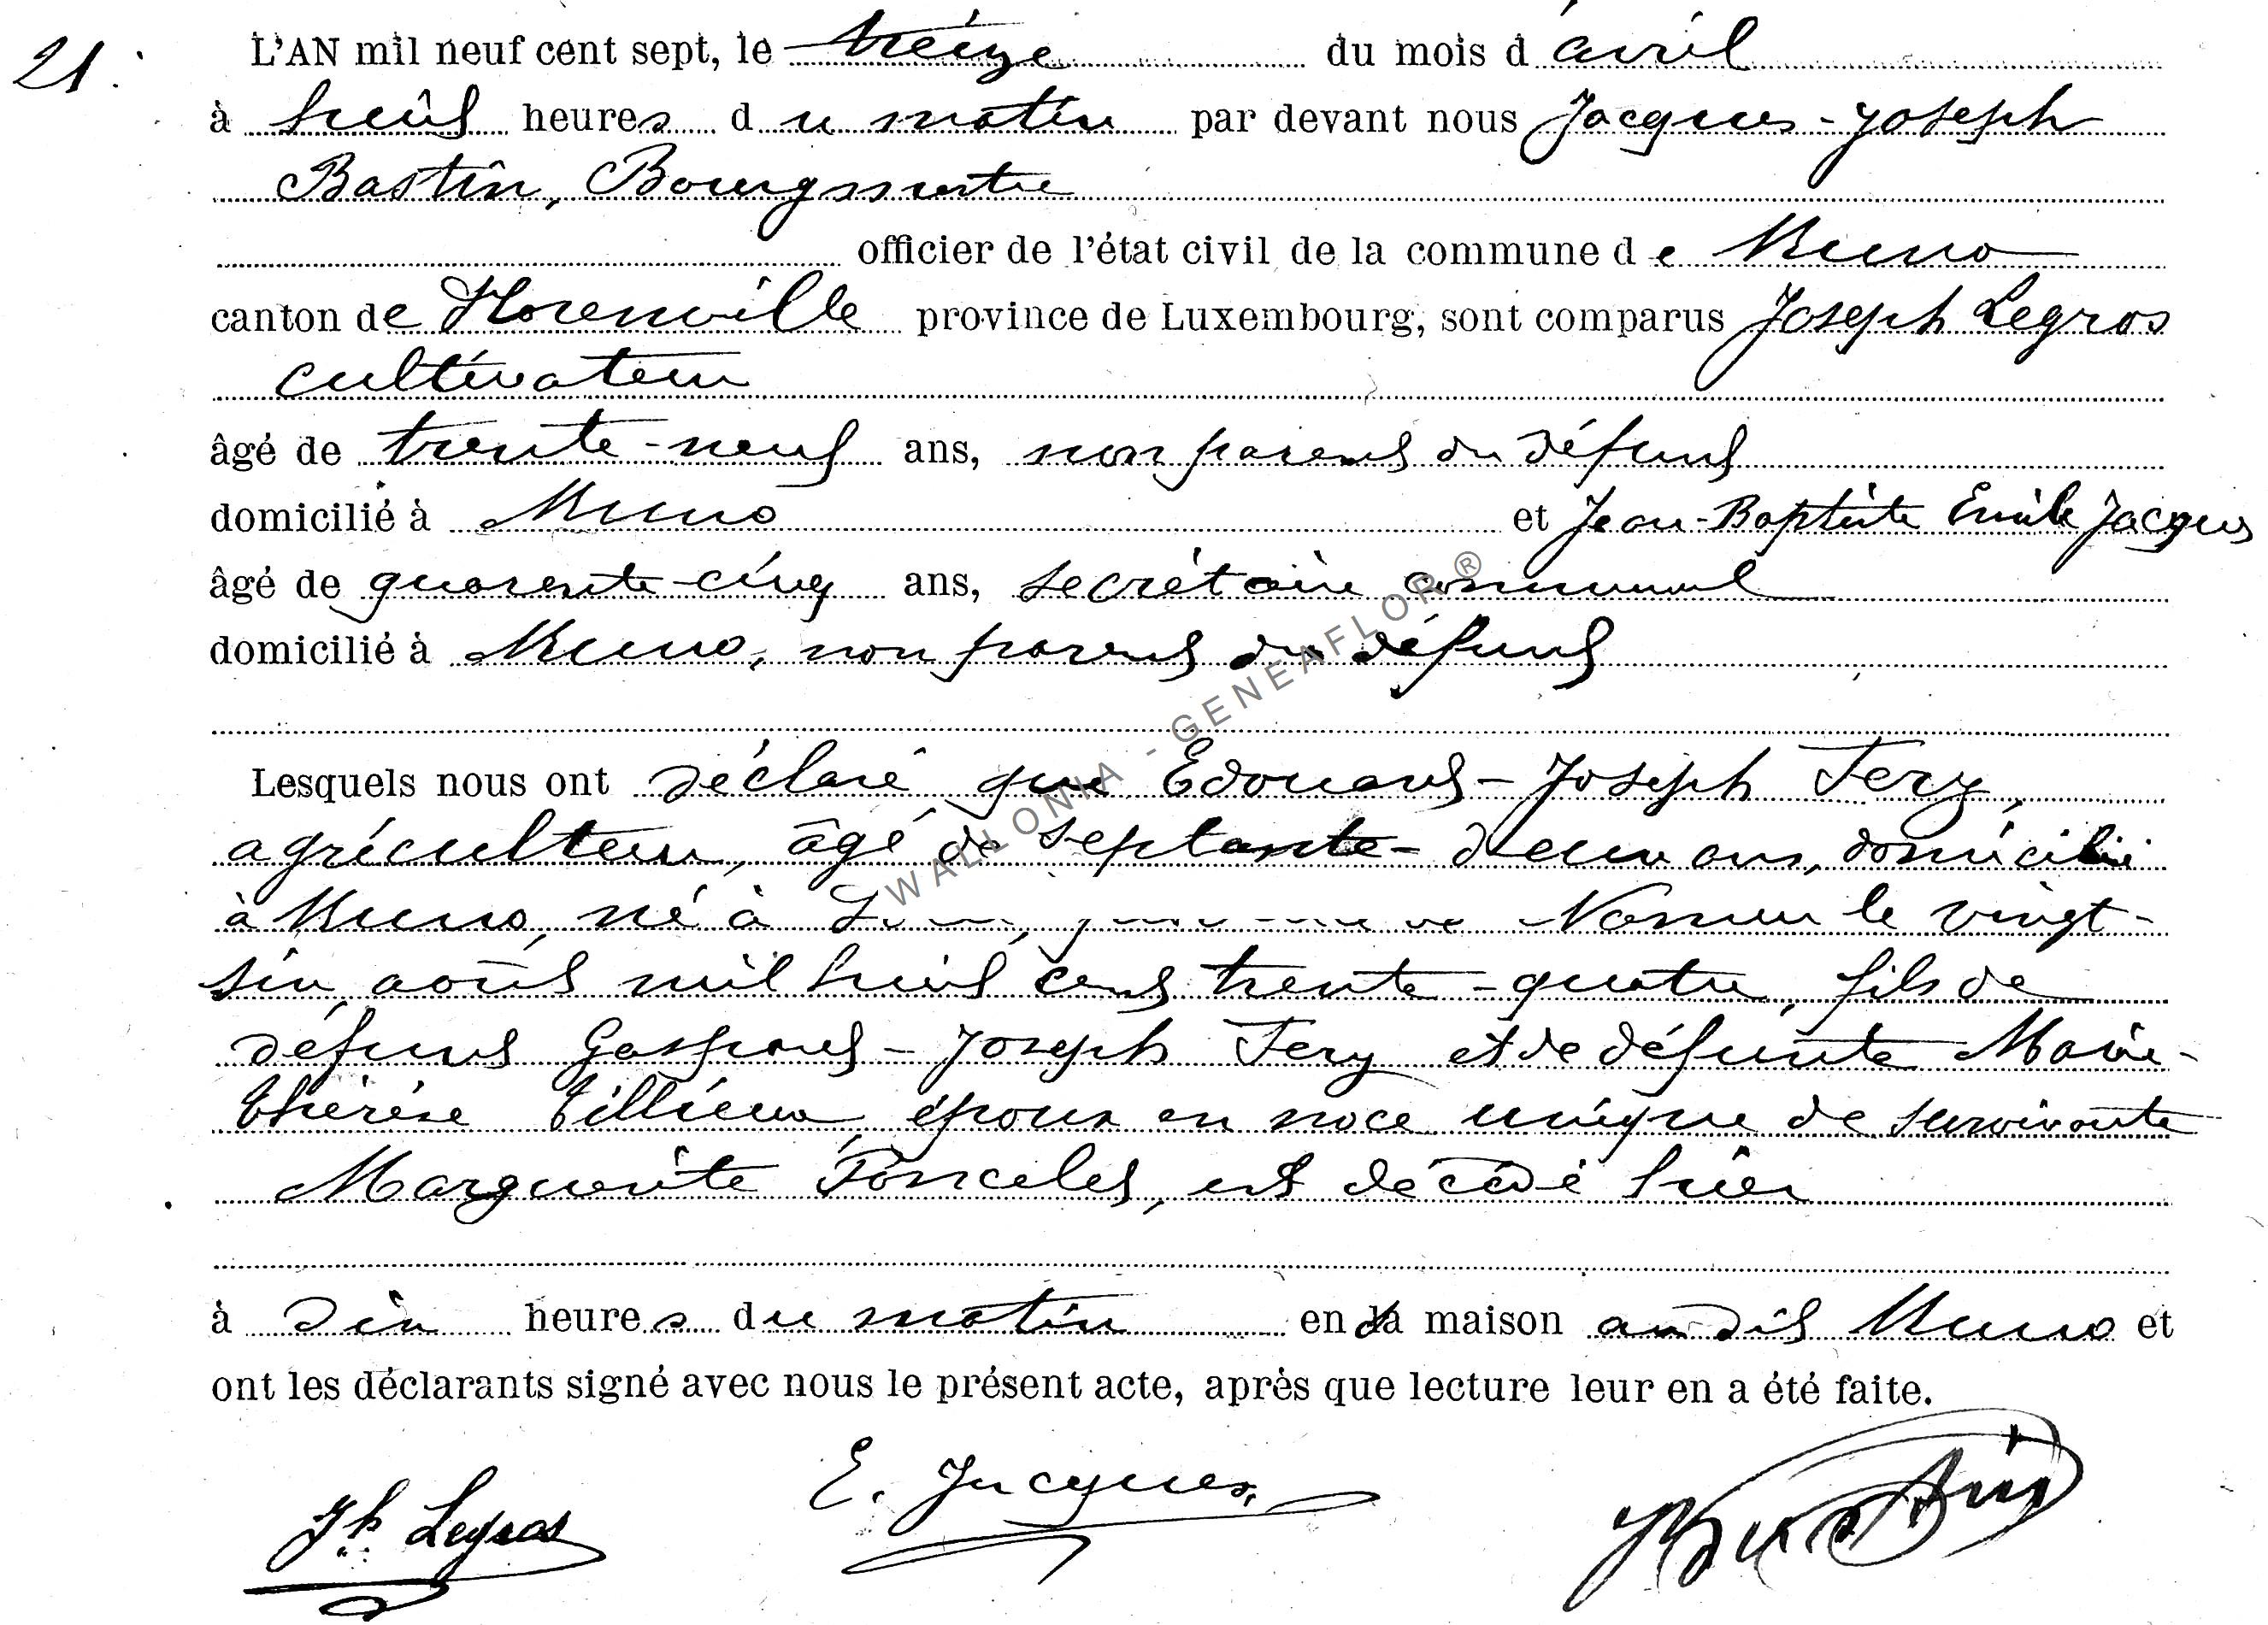 21.
L'AN mil neuf cent sept, le treize du mois d'avril
à huit heures du matin par devant nous Jacques-Joseph
Bastin, Bourgmestre
officier de l'état civil de la commune de Muno
canton de Florenville province de Luxembourg, sont comparus Joseph Legros
cultivateur
âgé de trente-neuf ans, non parent du défunt
domicilié à Muno et Jean-Baptiste Emile Jacques
âgé de quarante-cinq ans, secrétaire communal
domicilié à Muno, non parent du défunt
Lesquels nous ont déclaré que Edouard-Joseph Fery,
agriculteur, âgé de septante-deux ans, domicilié
à Muno, né à Namur le vingt-
six août mil huit cent trente-quatre, fils de
défunt Gaspard-Joseph Fery et de défunte Marie-
Thérèse Tillieux époux en noce unique de survivante
Marguerite Poncelet, est décédé hier
à dix heures du matin en sa maison au dit Muno et
ont les déclarants signé avec nous le présent acte, après que lecture leur en a été faite.
Jh. Legros
E. Jacques
JJBastin
WALLONIA - GENEAFLOR ®